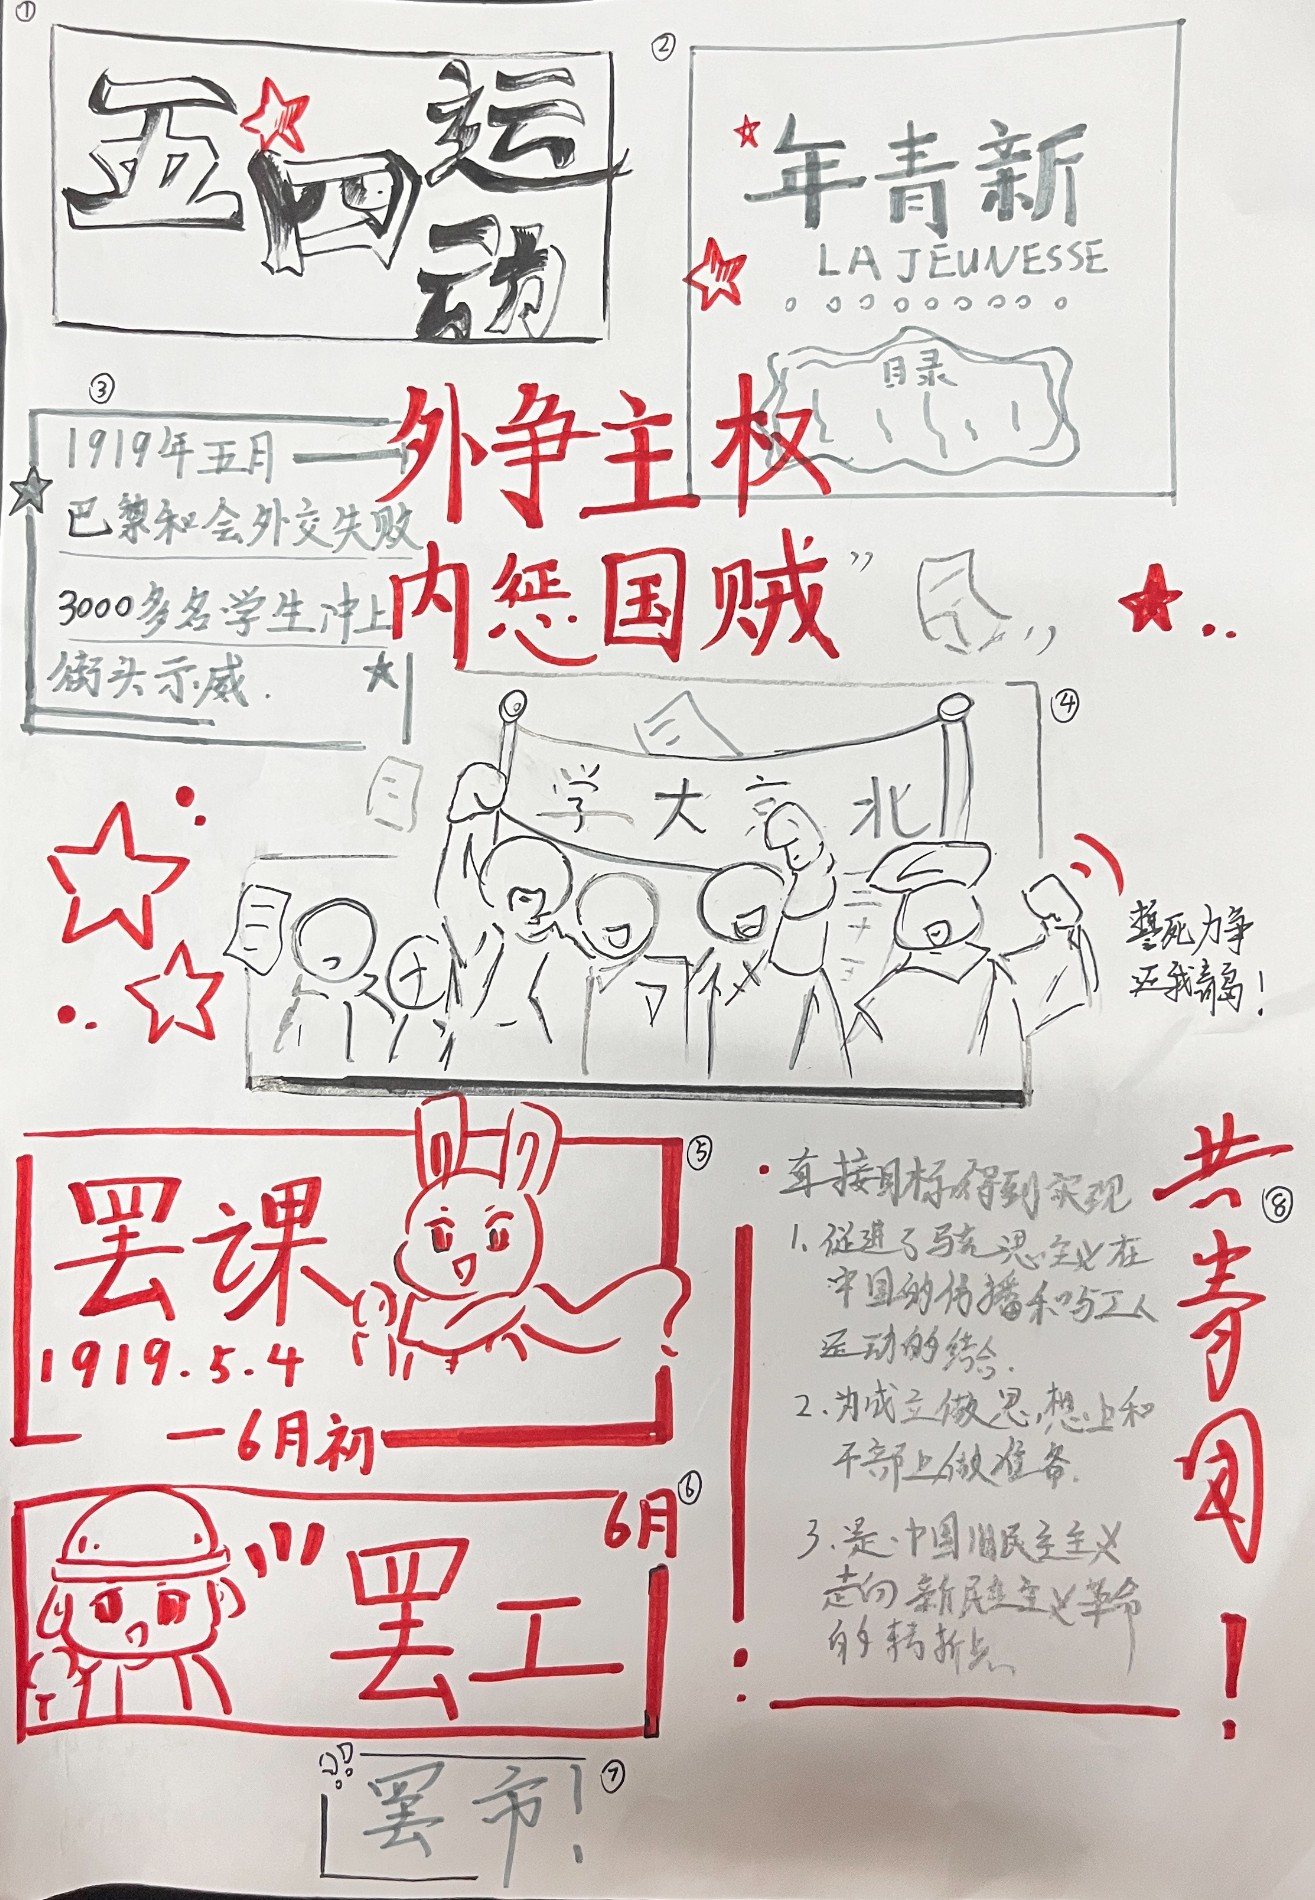 ①
五四运
动
②
年青新
LA JEUNESSE
目录
③
1919年五月
巴黎和会外交失败
3000多名学生冲上
街头示威.
外争主权
内惩国贼”
④
学大京北
二
十
誓死力争
还我青岛!
⑤
罢课
1919.5.4
一6月初
⑥
6月
罢工
⑦
罢市!
⑧
共青团!
·直接目标得到实现
1、促进了马克思主义在
中国的传播和与工人
运动的结合.
2、为成立做思想上和
干部上做准备.
3、是中国旧民主主义
走向新民主主义革命
的转折点、